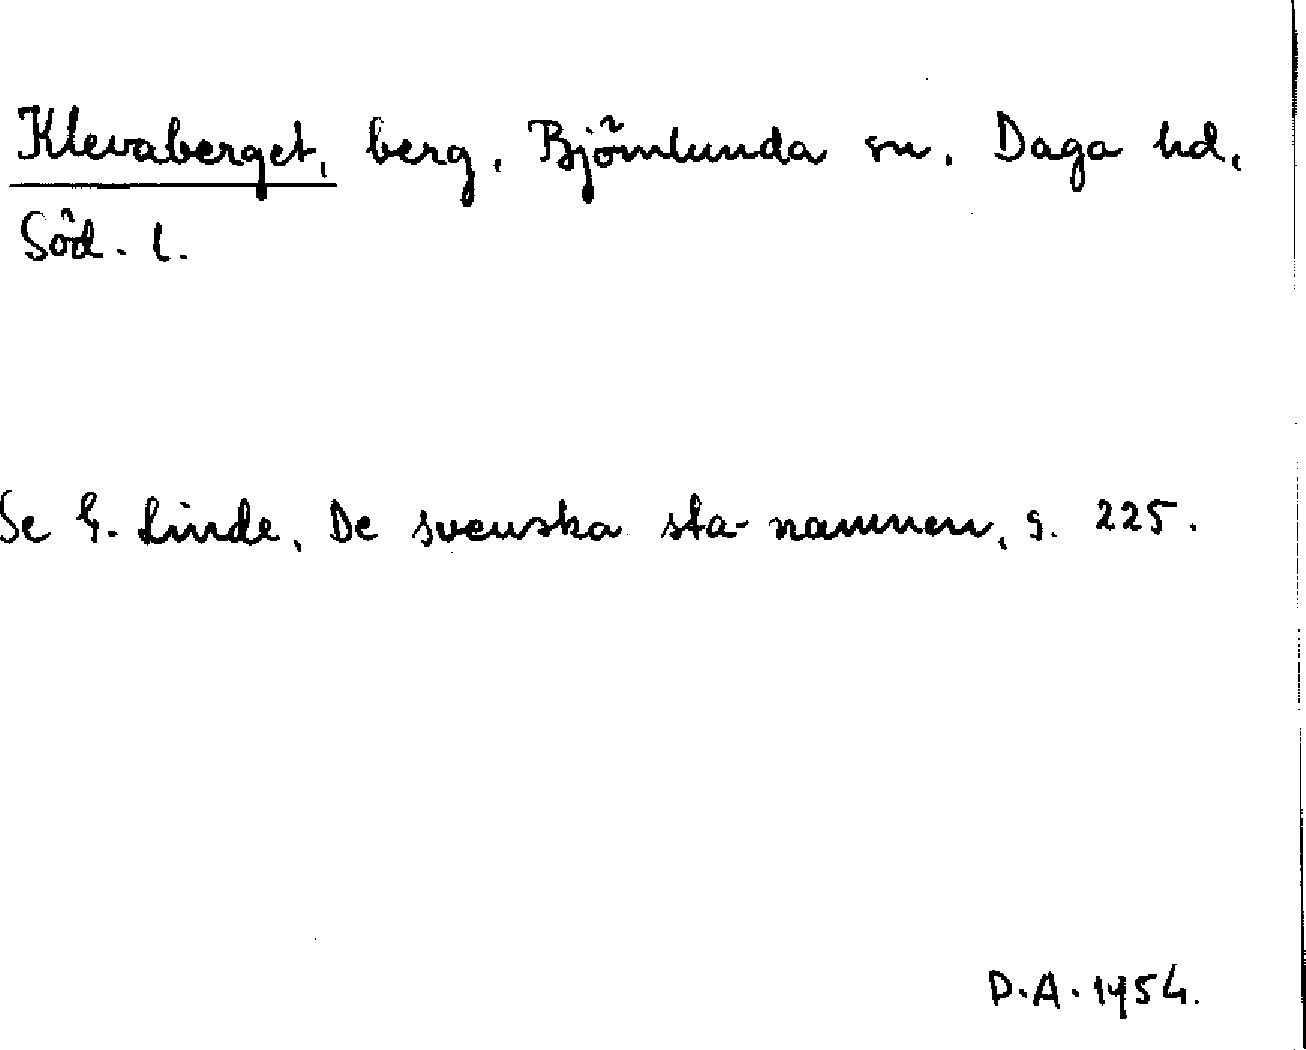 Klevaberget, berg, Björnlunda sn, Daga hd,
Söd. l.
Se G. Linde, De svenska sta-namnen, s. 225.
D.A. 1954.